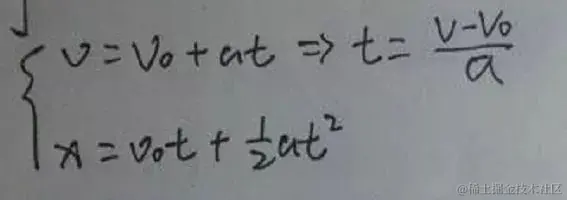 v = v₀ + at ⇒ t = (v-v₀)/a
x = v₀t + ½at²
@稀土掘金技术社区